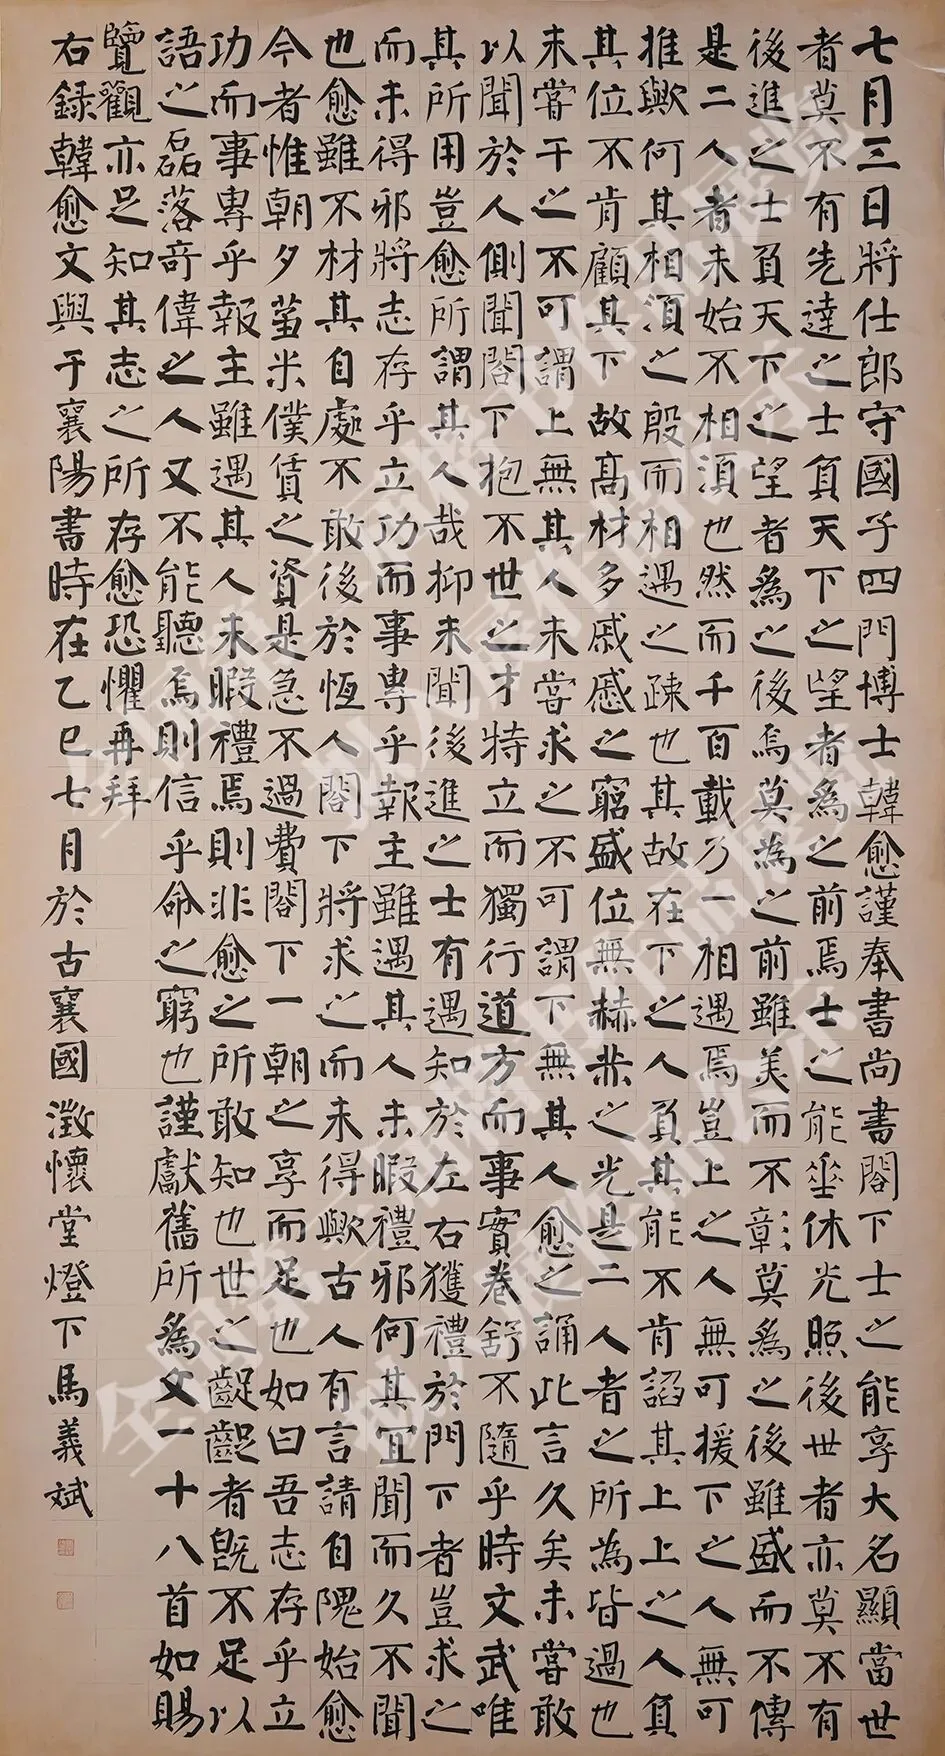 七月三日將仕郎守國子四門博士韓愈謹奉書尚書閤下士之能享大名顯當世
者莫不有先達之士負天下之望者為之前焉士之能垂休光照後世者亦莫不有
後進之士負天下之望者為之後焉莫為之前雖美而不彰莫為之後雖盛而不傳
是二人者未始不相須也然而千百載乃一相遇焉豈上之人無可援下之人無可
推歟何其相須之殷而相遇之疎也其故在下之人負其能不肯諂其上上之人負
其位不肯顧其下故高材多戚戚之窮盛位無赫赫之光是二人者之所為皆過也
未嘗干之不可謂上無其人未嘗求之不可謂下無其人愈之誦此言久矣未嘗敢
以聞於人側聞閤下抱不世之才特立而獨行道方而事實卷舒不隨乎時文武唯
其所用豈愈所謂其人哉抑未聞後進之士有遇知於左右獲禮於門下者豈求之
而未得邪將志存乎立功而事專乎報主雖遇其人未暇禮邪何其宜聞而久不聞
也愈雖不材其自處不敢後於恆人閤下將求之而未得歟古人有言請自隗始愈
今者惟朝夕芻米僕賃之資是急不過費閤下一朝之享而足也如曰吾志存乎立
功而事專乎報主雖遇其人未暇禮焉則非愈之所敢知也世之齪齪者既不足以
語之磊落奇偉之人又不能聽焉則信乎命之窮也謹獻舊所為文一十八首如賜
覽觀亦足知其志之所存愈恐懼再拜
右録韓愈文與于襄陽書時在乙巳七月於古襄國澂懷堂燈下馬義斌